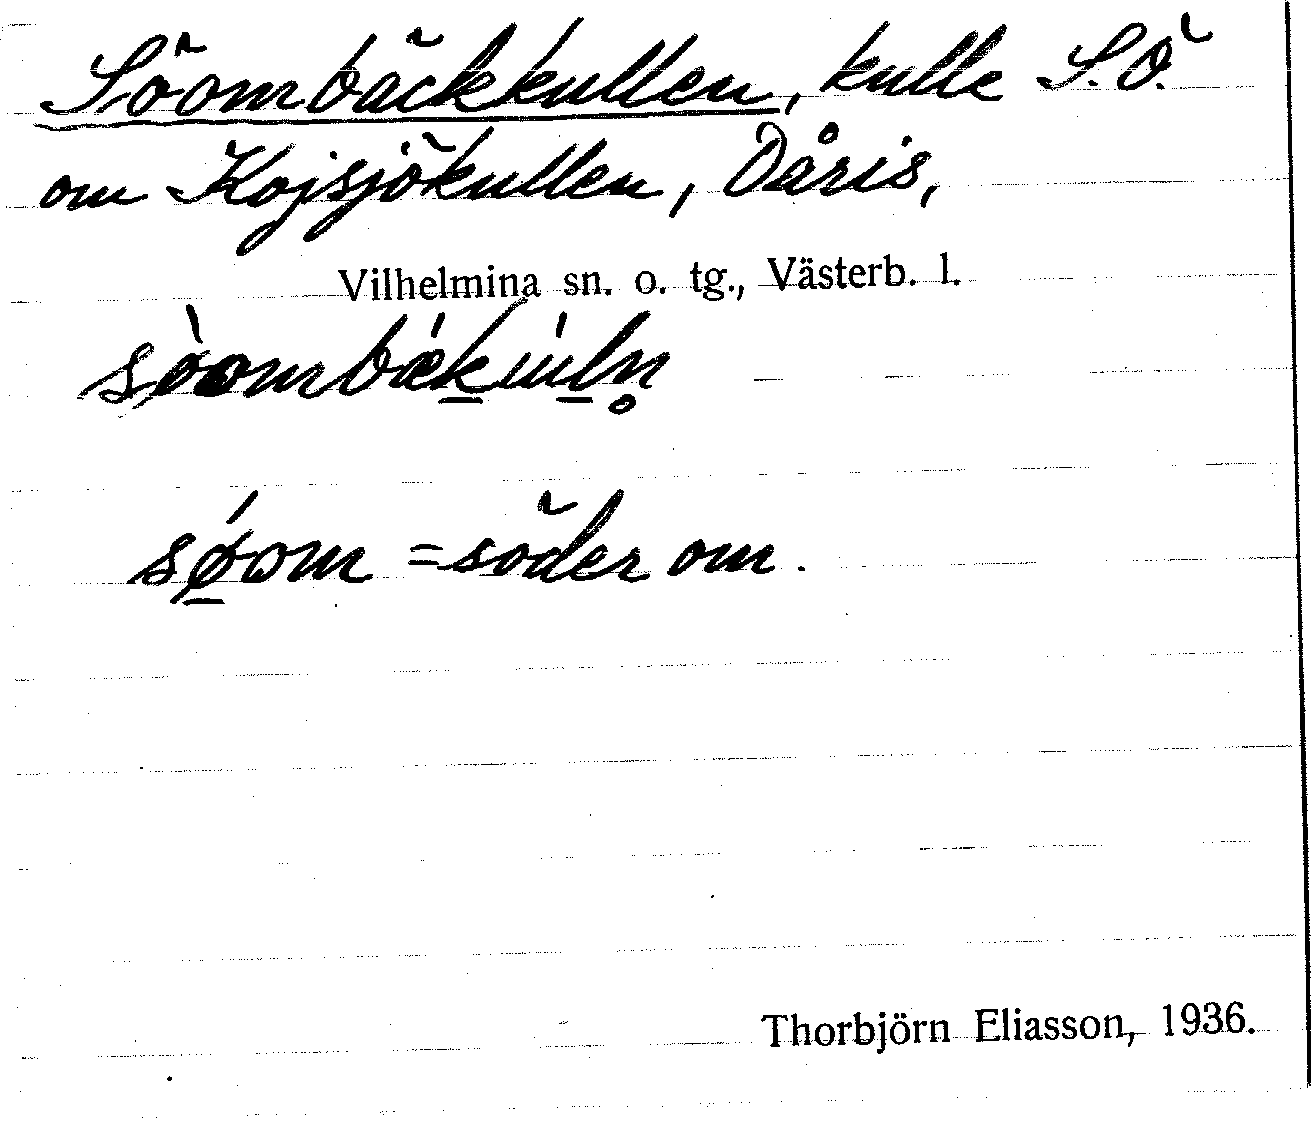 Söombäckkullen, kulle S.Ö.
om Kojsjökullen, Dåris,
Vilhelmina sn. o. tg., Västerb. l.
søom = söder om.
Thorbjörn Eliasson, 1936.